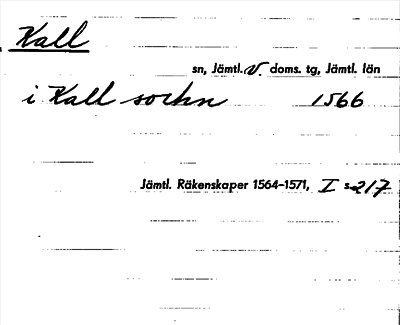 Kall
sn, Jämtl. v. doms. tg, Jämtl. län
i Kall sockn 1566
Jämtl. Räkenskaper 1564-1571, I s. 217